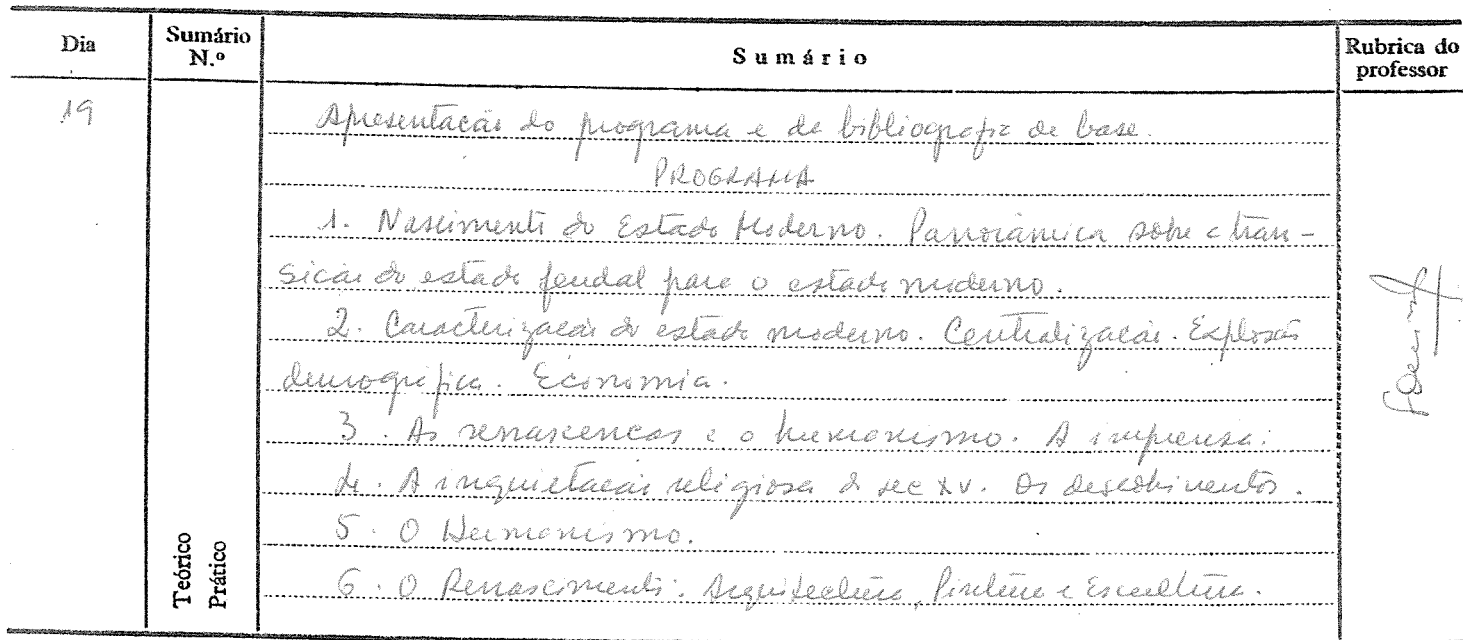 Dia
Sumário N.º
Sumário
Rubrica do professor
19
Apresentação do programa e da bibliografia de base.
PROGRAMA
1. Nascimento do Estado Moderno. Panorâmica sobre a tran-
sição do estado feudal para o estado moderno.
2. Caracterização do estado moderno. Centralização. Explosão
demográfica. Economia.
3. As renascenças e o humanismo. A imprensa.
4. A inquietação religiosa do sec XV. Os descobrimentos.
5. O Humanismo.
6. O Renascimento: Arquitectura, Pintura e Escultura.
Teórico
Prático